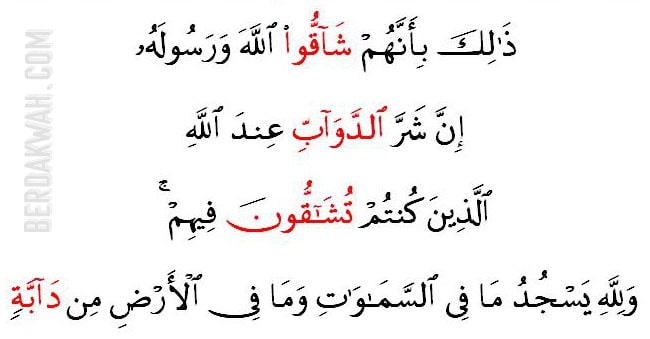 ذَٰلِكَ بِأَنَّهُمْ شَآقُّوا۟ ٱللَّهَ وَرَسُولَهُۥ
إِنَّ شَرَّ ٱلدَّوَآبِّ عِندَ ٱللَّهِ
ٱلَّذِينَ كُنتُمْ تُشَـٰٓقُّونَ فِيهِمْ ۚ
وَلِلَّهِ يَسْجُدُ مَا فِى ٱلسَّمَـٰوَٰتِ وَمَا فِى ٱلْأَرْضِ مِن دَآبَّةٍ
BERDAKWAH.COM